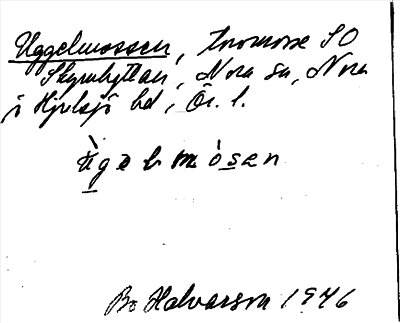 Uggelmossen, tromosse SO
Skrombyttan, Nora sn, Nora
o Hjulsjö bd, Ör. l.
ùgəlmòsen
Bo Halvarson 1946